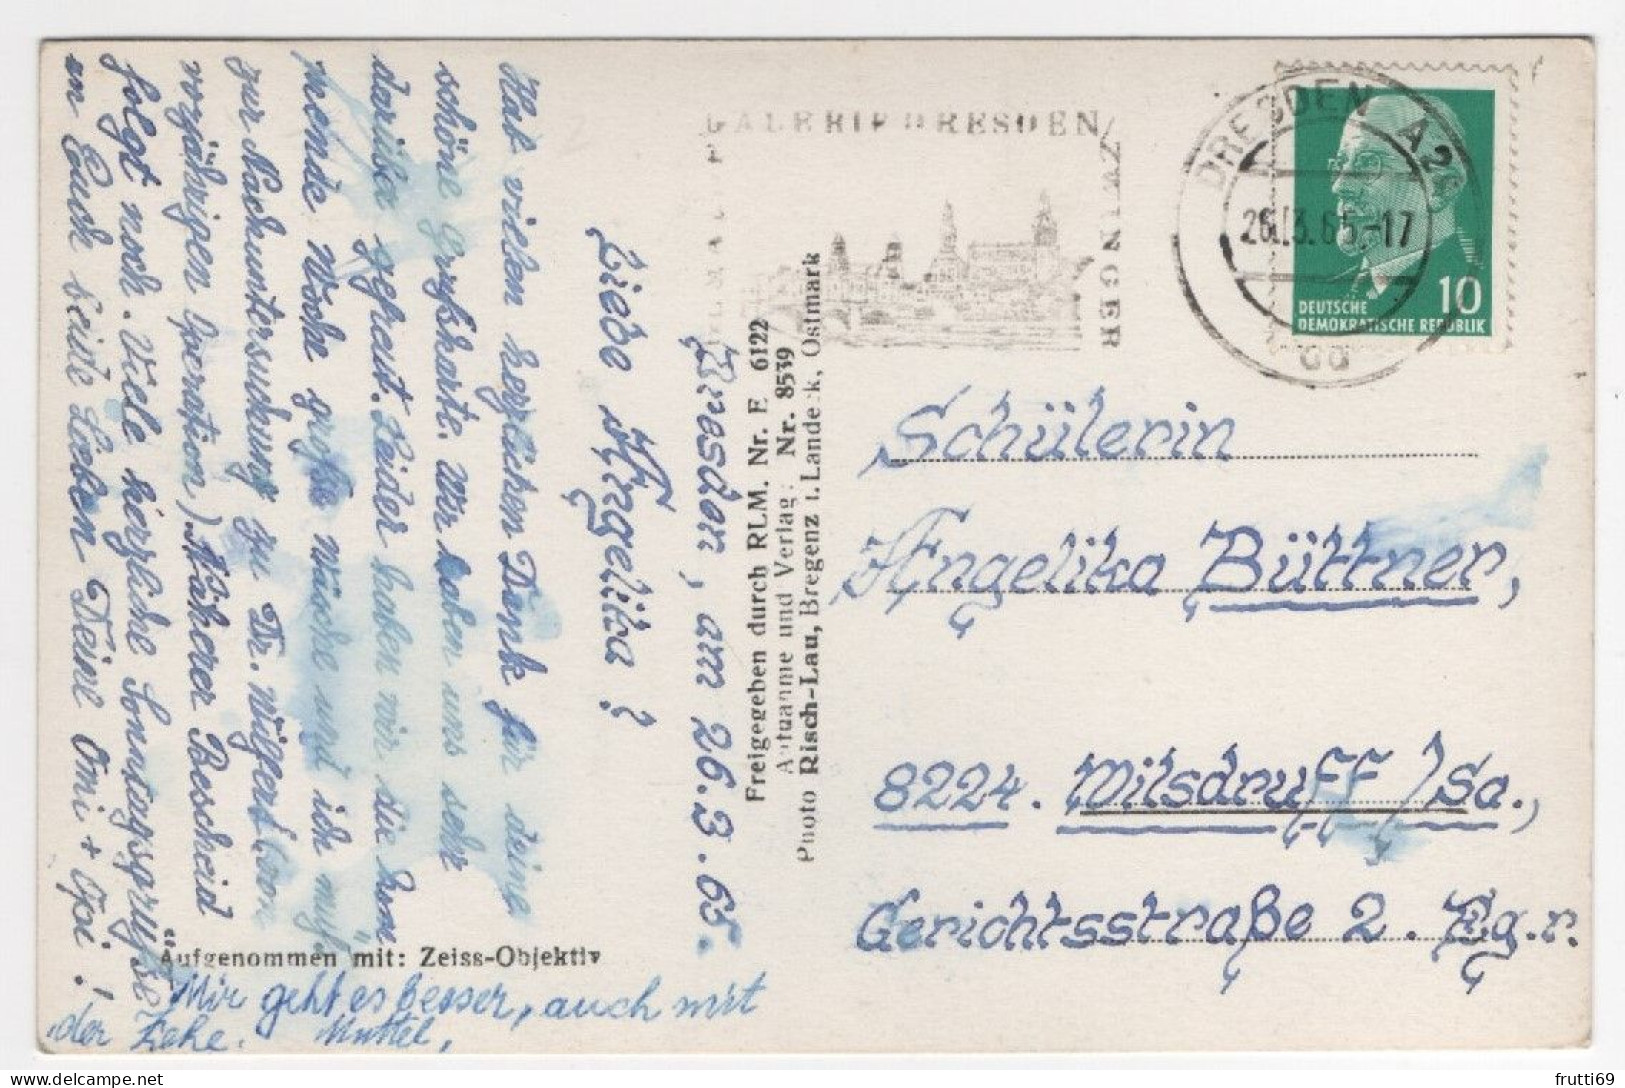 Dresden, am 26.3.65.
Liebe Angelika!
Hab vielen herzlichen Dank für deine
schöne Grußkarte. Wir haben uns sehr
darüber gefreut. Leider haben wir die kom
mende Woche große Wäsche und ich muß
zur Nachuntersuchung zu Dr. Wülfert (von
vorjährigen Operation) Näherer Bescheid
folgt noch. Viele herzliche Sonntagsgrüße
an Euch beide Lieben Deine Omi + Opi!
Mir geht es besser, auch mit
der Zehe. Muttel,
"Aufgenommen mit: Zeiss-Objektiv
Freigegeben durch RLM. Nr. E 6122
Aufnahme und Verlag: Nr. 8539
Photo Risch-Lau, Bregenz i. Landeck, Ostmark
GALERIE DRESDEN
ZWINGER
DRESDEN A26
26.3.65.-17
10
DEUTSCHE
DEMOKRATISCHE REPUBLIK
Schülerin
Angelika Büttner,
8224. Wilsdruff/Sa.,
Gerichtsstraße 2. Eg.r.
frutti69